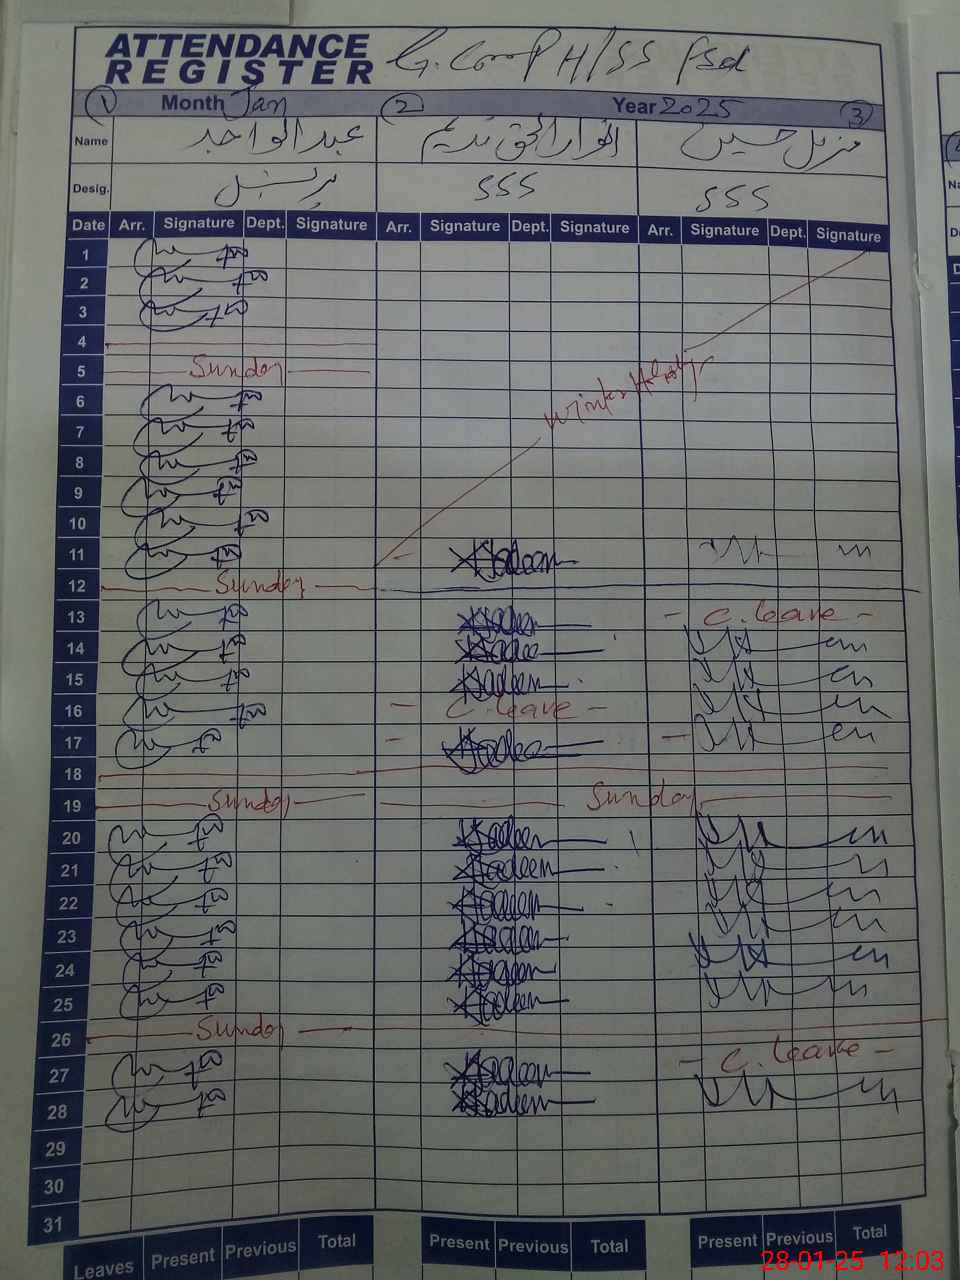 ATTENDANCE REGISTER G. Comp H/SS Fsd
1 Month Jan 2 Year 2025 3
Name عبد الواحد انوار الحق ندیم مزمل حسین
Desig. پرنسپل SSS SSS
Date Arr. Signature Dept. Signature Arr. Signature Dept. Signature Arr. Signature Dept. Signature
1
2
3
4
5 Sunday
6 Winter Holiday
7
8
9
10
11 Nadeem
12 Sunday
13 Nadeem C. leave
14 Nadeem
15 Nadeem
16 C. leave
17 Nadeem
18
19 Sunday Sunday
20 Nadeem
21 Nadeem
22 Nadeem
23 Nadeem
24 Nadeem
25 Nadeem
26 Sunday
27 Nadeem C. leave
28 Nadeem
29
30
31
Leaves Present Previous Total Present Previous Total Present Previous Total
28-01-25 12:03